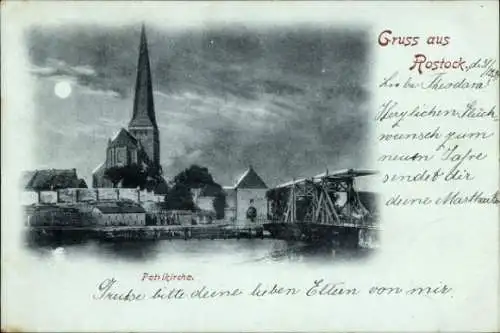 Gruss aus
Rostock, d. 31/12
Liebe Theodora!
Herzlichen Glück-
wunsch zum
neuen Jahre
sendet dir
deine Martha
Petrikirche.
Grüsse bitte deine lieben Eltern von mir.